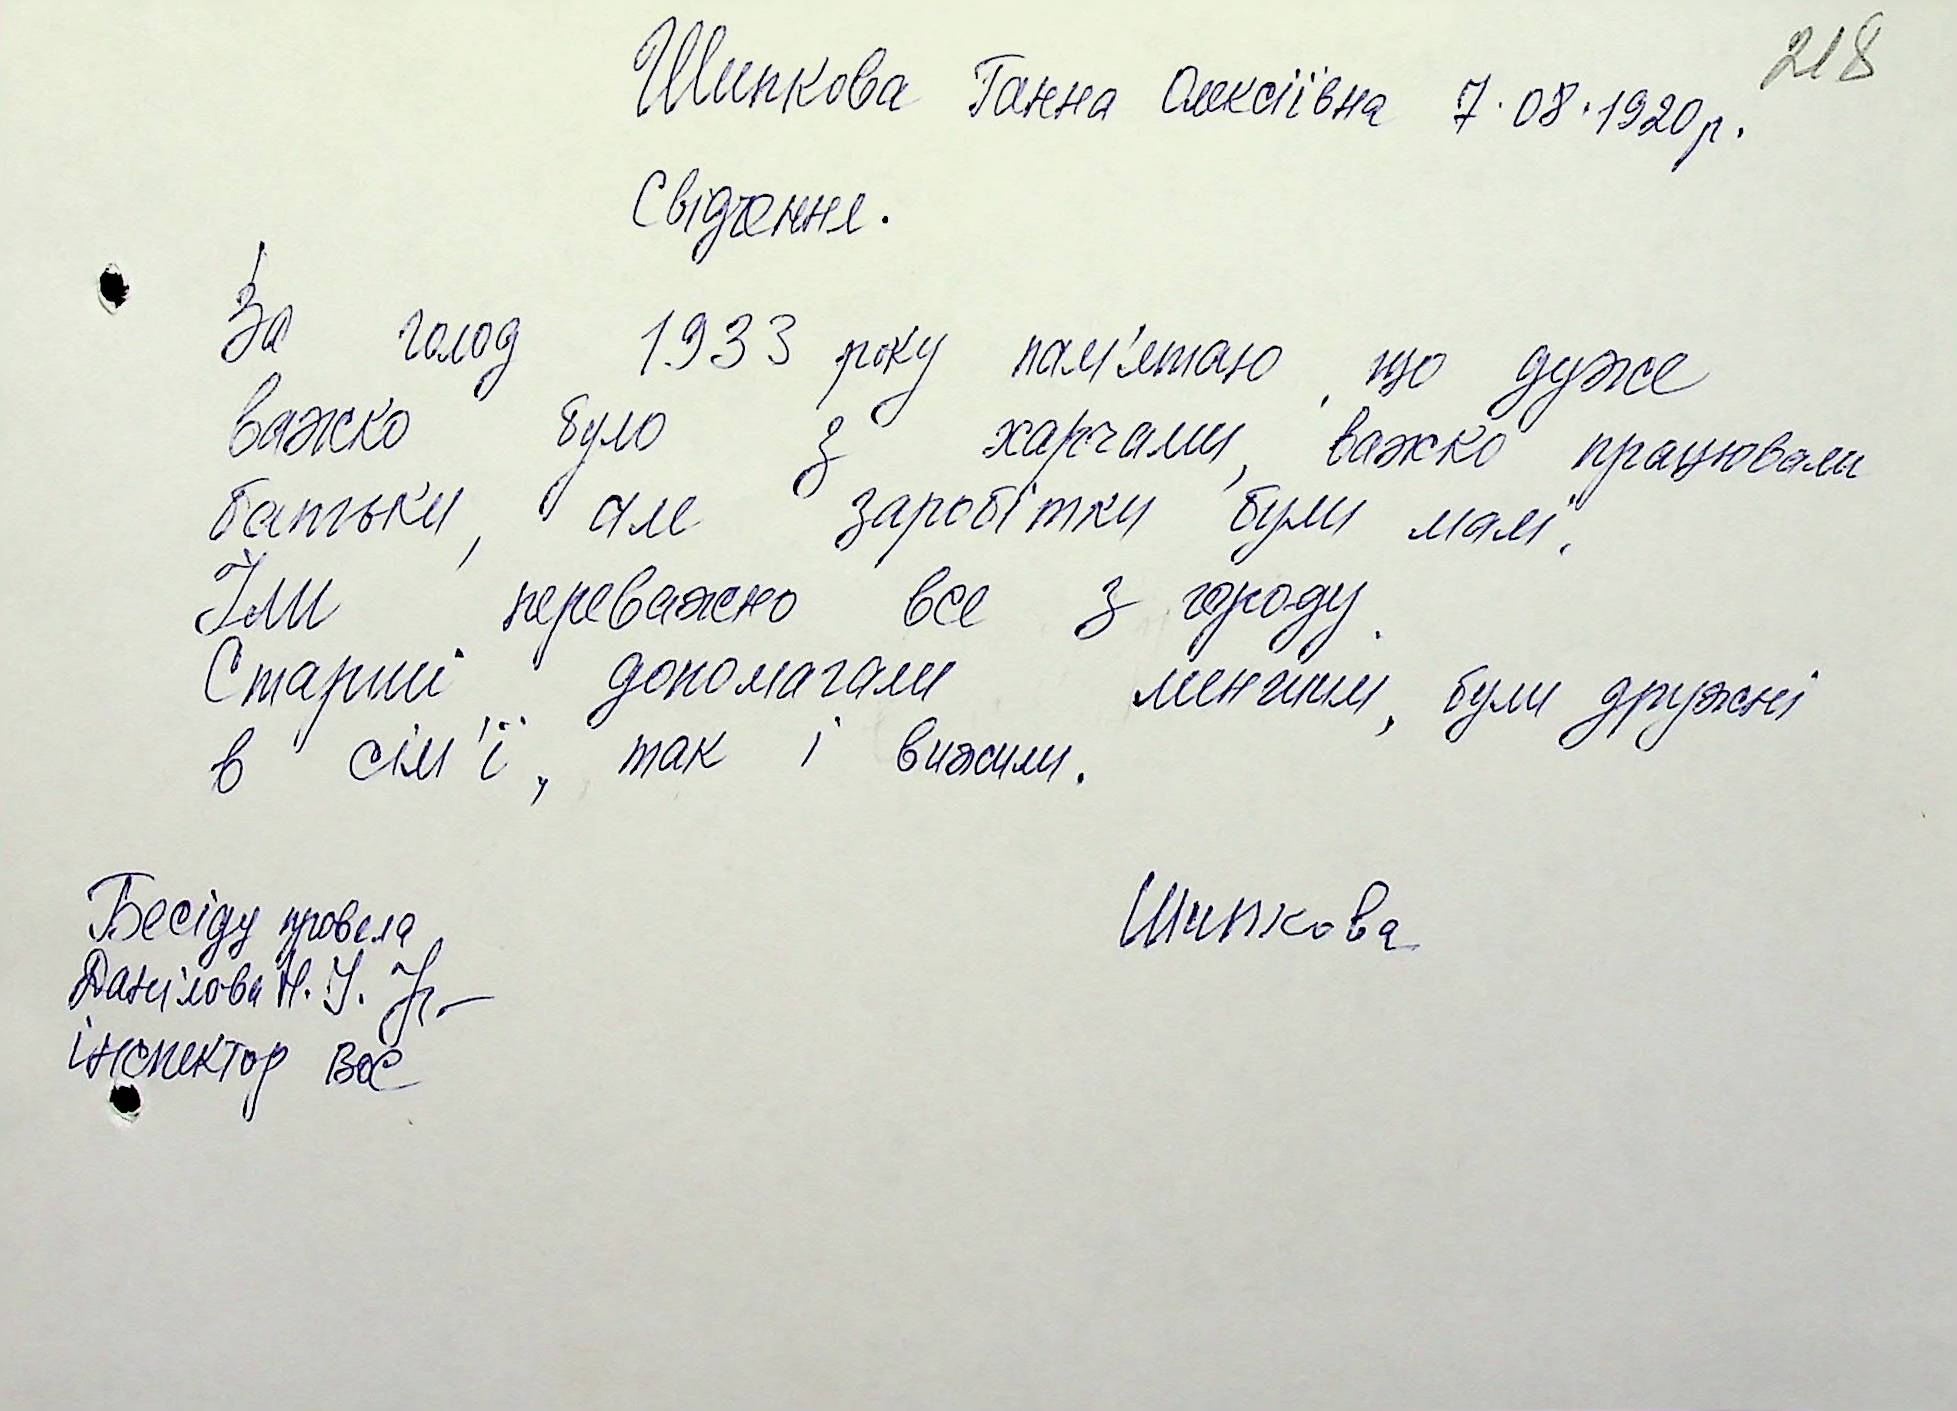 218
Шипкова Ганна Олексіївна 7.08.1920р.
Свідчення.
За голод 1933 року пам'ятаю, що дуже
важко було з харчами, важко працювали
батьки, але заробітки були малі.
Їли переважно все з городу.
Старші допомагали меншим, були дружні
в сім'ї, так і вижили.
Шипкова
Бесіду провела
Данілова Н. І.
інспектор ВОС